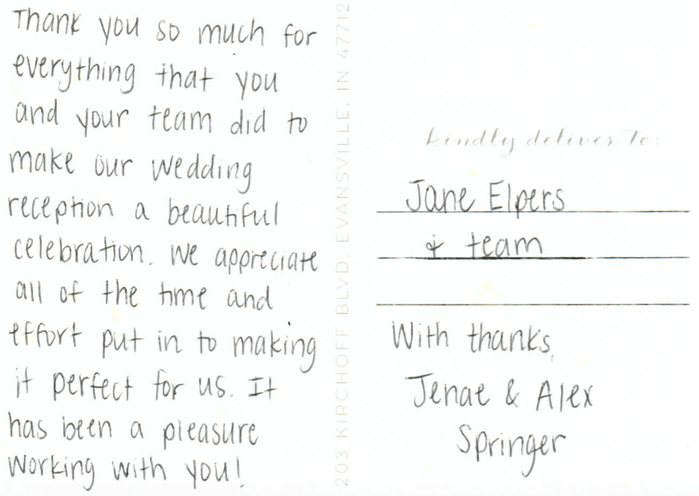 Thank you so much for
everything that you
and your team did to
make our wedding
reception a beautiful
celebration. We appreciate
all of the time and
effort put in to making
it perfect for us. It
has been a pleasure
working with you!
203 KIRCHOFF BLVD. EVANSVILLE, IN 47712
kindly deliver to:
Jane Elpers
& team
With thanks,
Jenae & Alex
Springer